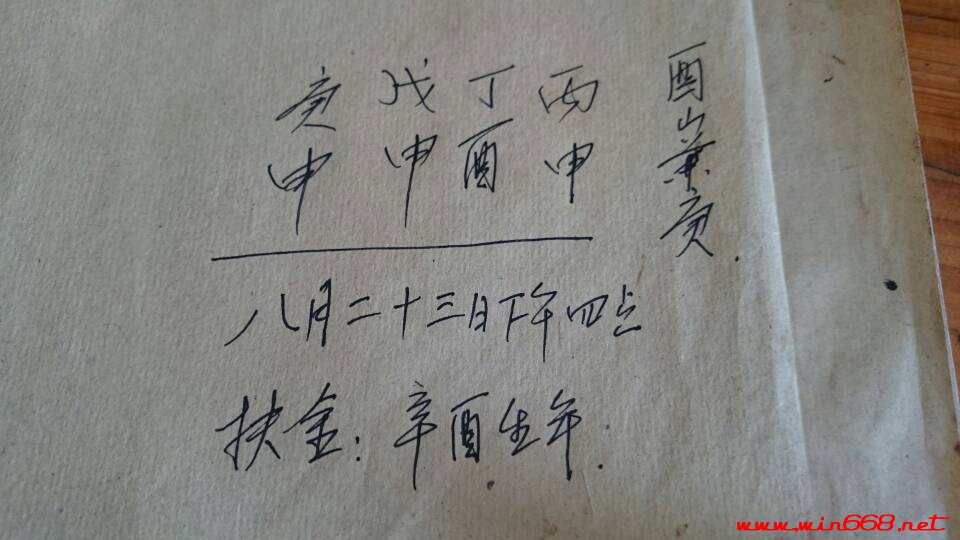 酉山兼庚.
庚 戊 丁 丙
申 申 酉 申
八月二十三日下午四点
扶金：辛酉生年.
www.win668.net